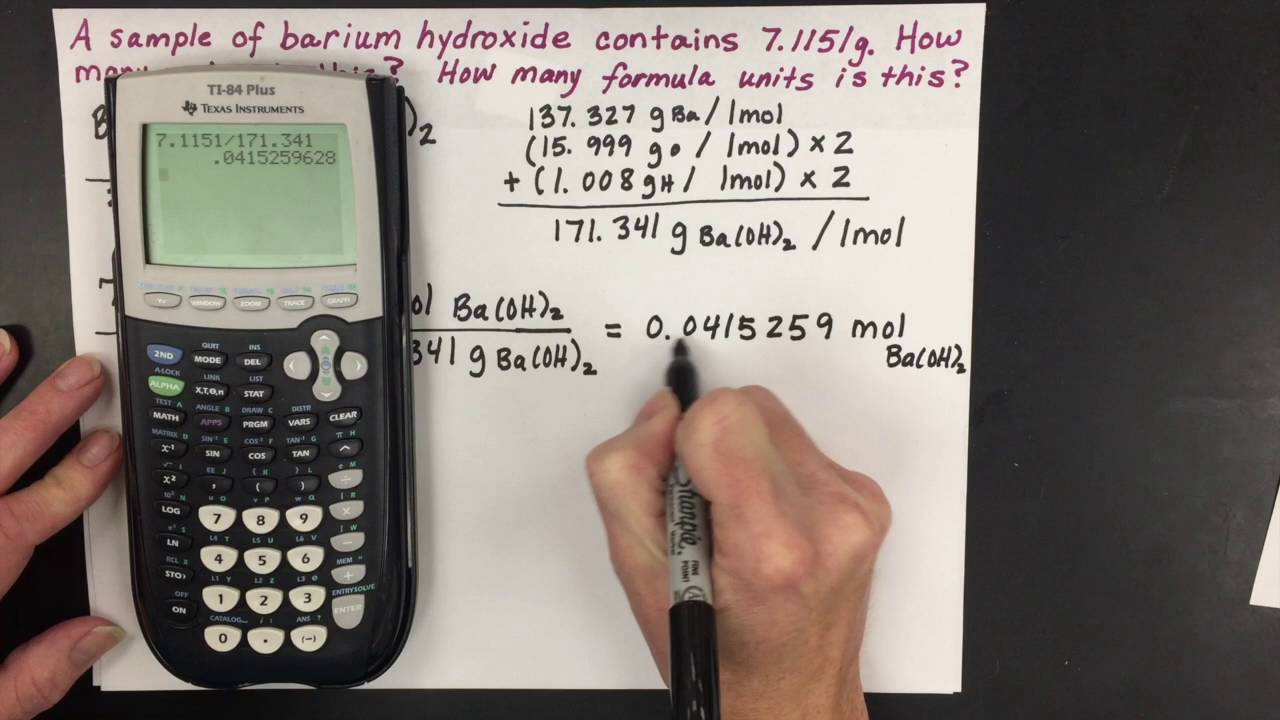 A sample of barium hydroxide contains 7.1151g. How
this? How many formula units is this?
137.327 g Ba / 1mol
(15.999 g O / 1mol) × 2
+ (1.008 g H / 1mol) × 2
)2
171.341 g Ba(OH)2 / 1mol
ol Ba(OH)2
341 g Ba(OH)2
= 0.0415259 mol
Ba(OH)2
TI-84 Plus
TEXAS INSTRUMENTS
7.1151/171.341
.0415259628
Y= WINDOW ZOOM TRACE GRAPH
QUIT INS
2ND MODE DEL
A-LOCK LINK LIST
ALPHA X,T,Θ,n STAT
TEST A ANGLE B DRAW C DISTR
MATH APPS PRGM VARS CLEAR
MATRIX D SIN-1 E COS-1 F TAN-1 G π H
X-1 SIN COS TAN ^
√ I EE J { K } L e M
X2 , ( ) ÷
10x N u O v P w Q [ R
LOG 7 8 9 ×
ex S L4 T L5 U L6 V ] W
LN 4 5 6 −
RCL X L1 Y L2 Z L3 θ MEM "
STO› 1 2 3 +
OFF CATALOG i : ANS ? ENTRY SOLVE
ON 0 . (−) ENTER
Sharpie
FINE
POINT